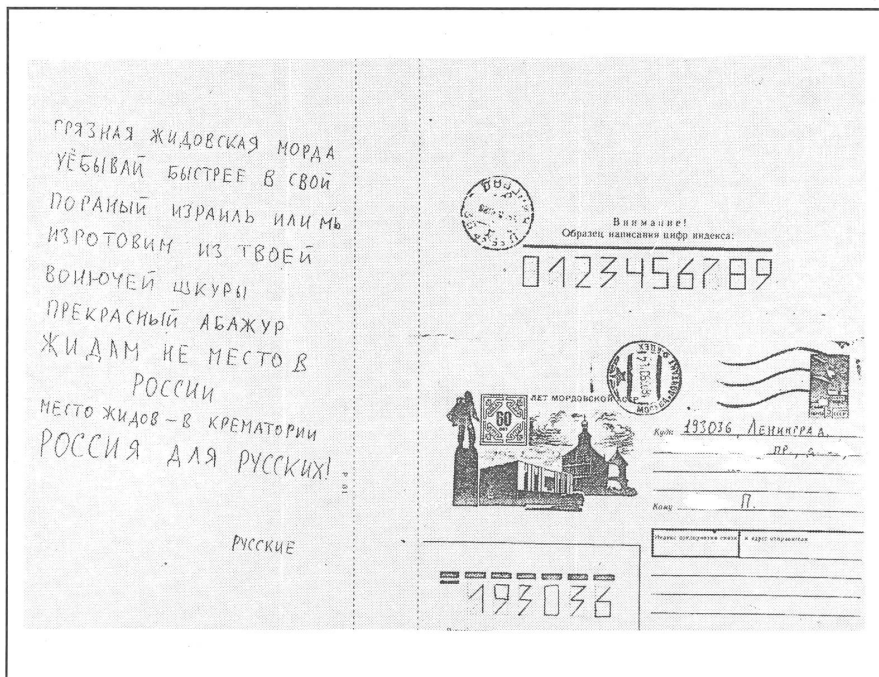 ГРЯЗНАЯ ЖИДОВСКАЯ МОРДА
УЁБЫВАЙ БЫСТРЕЕ В СВОЙ
ПОРАНЫЙ ИЗРАИЛЬ ИЛИ МЫ
ИЗГОТОВИМ ИЗ ТВОЕЙ
ВОНЮЧЕЙ ШКУРЫ
ПРЕКРАСНЫЙ АБАЖУР
ЖИДАМ НЕ МЕСТО В
РОССИИ
МЕСТО ЖИДОВ – В КРЕМАТОРИИ
РОССИЯ ДЛЯ РУССКИХ!
РУССКИЕ
Внимание!
Образец написания цифр индекса:
0123456789
60 ЛЕТ МОРДОВСКОЙ АССР
Куда 193036, ЛЕНИНГРАД,
ПР., Д –,
Кому П.
Индекс предприятия связи и адрес отправителя
193036